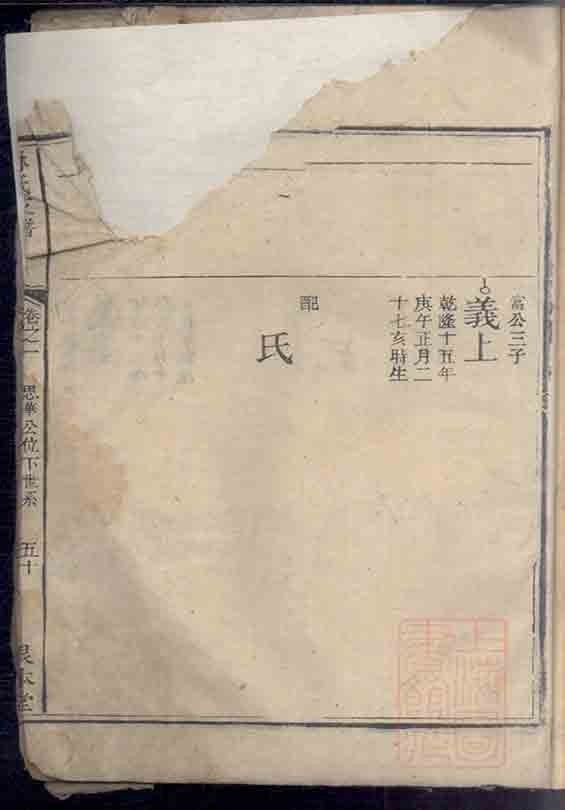 富公三子
義上
乾隆十五年
庚午正月二
十七亥時生
配
氏
卷之一
思華公位下世系
五十
上海圖書館藏